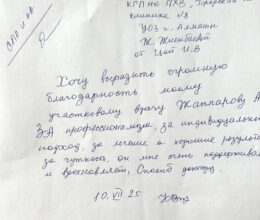 КГП на ПХВ "Городская
клиника №8
УОЗ г. Алматы
Ж. Жиенбаевой
от Цой И.В
Хочу выразить огромную
благодарность моему
участковому врачу Жаппарову А
за профессионализм, за индивидуальн
подход, за лечение и хорошие результ
за чуткость, он мне очень
и вдохновляет, Спасибо доктору.
10. VII 25